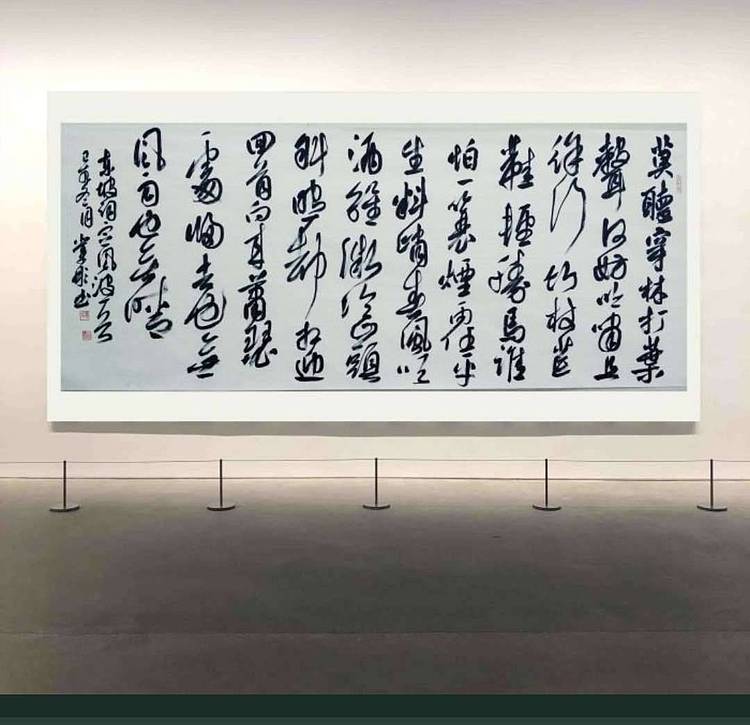 莫聽穿林打葉
聲何妨吟嘯且
徐行竹杖芒
鞵輕勝馬誰
怕一蓑煙雨任平
生料峭春風吹
酒醒微冷山頭
斜照却相迎
回首向來蕭瑟
處歸去也無
風雨也無晴
東坡詞定風波
己亥冬月